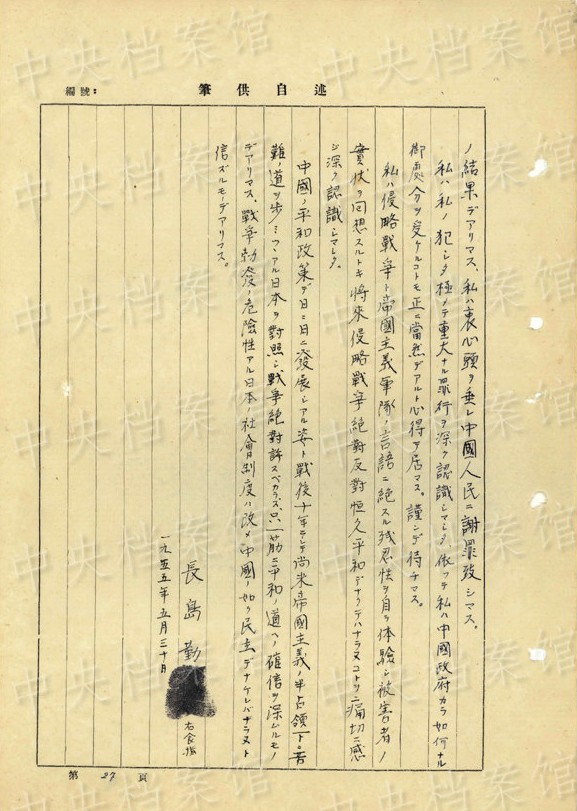 編號:
筆供自述
ノ結果デアリマス、私ハ衷心頭ヲ垂レ中國人民ニ謝罪致シマス。
私ハ私ノ犯シタ極メテ重大ナル罪行ヲ深ク認識シマシタ 依ツテ私ハ中國政府カラ如何ナル
御處分ヲ受ケルコトモ正ニ當然デアルト心得テ居マス。謹ンデ待チマス。
私ハ侵略戰爭ト帝國主義軍隊ノ言語ニ絶スル殘忍性ヲ自ラ体驗シ被害者ノ
實状ヲ回想スルトキ將來侵略戰爭絶對反對恒久平和デナクテハナラヌコトヲ痛切ニ感
ジ深ク認識シマシタ。
中國ノ平和政策デ日ニ日ニ發展シアル姿ト戰後十年 尚米帝國主義ノ半占領下ニ苦
難ノ道ヲ歩ミツツアル日本ヲ對照シ戰爭絶對許スベカラズ、只一筋ニ平和ノ道ヘノ確信ヲ深ムルモノ
デアリマス、戰爭勃發ノ危險性アル日本ノ社會制度ハ改メ中國ノ如ク民主デナケレバナラヌト
信ズルモノデアリマス。
長島勤
右食指
一九五五年五月三十日
第 27 頁
中央档案馆